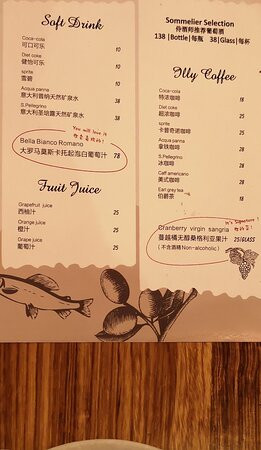 Soft Drink
Coca-cola
可口可乐 10
Diet coke
健怡可乐 10
sprite
雪碧 10
Acqua panna
意大利普纳天然矿泉水 38
S.Pellegrino
意大利圣培露天然矿泉水 38
You will love it
Bella Bianco Romano
大罗马莫斯卡托起泡白葡萄汁 78
Fruit Juice
Grapefruit juice
西柚汁 25
Orange juice
橙汁 25
Grape juice
葡萄汁 25
Sommelier Selection
侍酒师推荐葡萄酒
138 |Bottle|每瓶 38|Glass|每杯
Illy Coffee
Coca-cola
特浓咖啡
Diet coke
超浓咖啡
sprite
卡普奇诺咖啡
Acqua panna
拿铁咖啡
S.Pellegrino
冰咖啡
Caff americano
美式咖啡
Earl grey tea
伯爵茶
It's Signature!
Cranberry virgin sangria
蔓越橘无醇桑格利亚果汁 25|GLASS
(不含酒精Non-alcoholic)